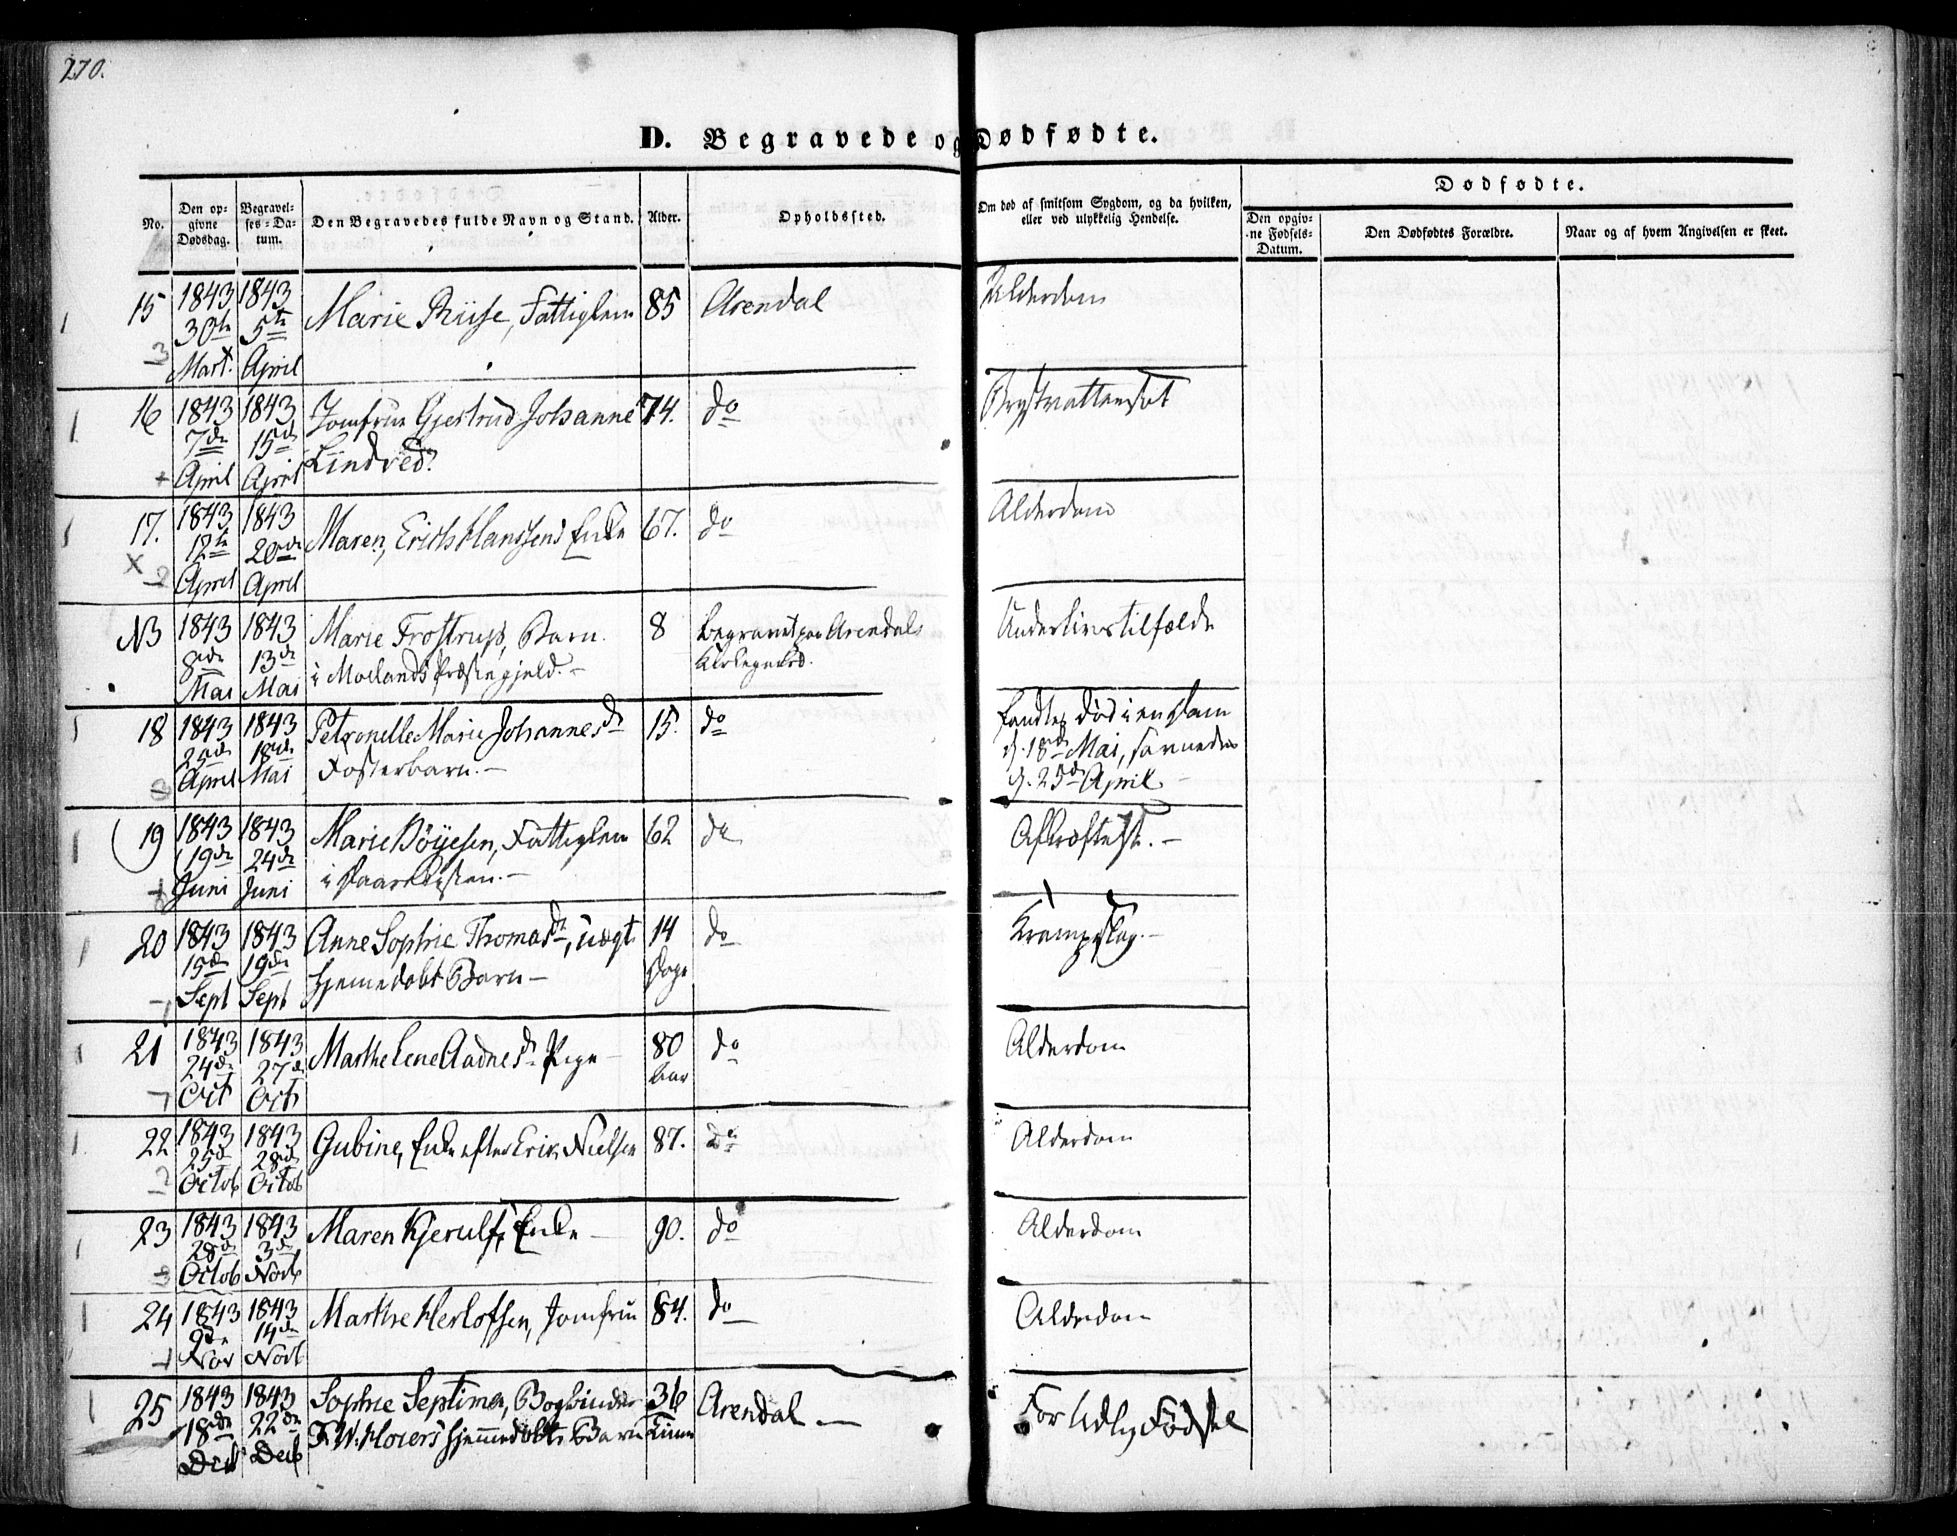 270.
D. Begravede og Dødfødte.
No.
Den op-
givne
Dødsdag.
Begravel-
ses-Da-
tum.
Den Begravedes fulde Navn og Stand.
Alder.
Opholdssted.
Om død af smitsom Sygdom, og da hvilken,
eller ved ulykkelig Hendelse.
Dødfødte.
Den opgiv-
ne Fødsels-
Datum.
Den Dødfødtes Forældre.
Naar og af hvem Angivelsen er skeet.
15 1843 1843 Marie Riise, Fattiglem 85 Arendal Alderdom
30te 5te
Mart. April
16 1843 1843 Jomfrue Gjertrud Johanne 74. do Brystvattersot
7de 15de
April April Lindved?
17. 1843 1843 Maren, Erich Hanssens Enke 67. do Alderdom
12te 20de
April April
NB 1843 1843 Marie Frostrup, Barn. 8 Begravet paa Arendals Underlivstilfælde
8de 13de i Moelands Præstegjeld.- Kirkegaard.
Mai Mai
18 1843 1843 Petronelle Marie Johannesdr 15. do fandtes død i en Dam
25de 18de Fosterbarn.- d. 18de Mai, savnedes
April Mai d. 25de April.-
19 1843 1843 Marie Böijesen, Fattiglem 62 do Afkræftelse.-
19de 24de
Juni Juni i Daarekisten.-
20 1843 1843 Anne Sophie Thomasdr, uægt 14 do Krampeslag.-
15de 19de Hjemmedøbt Barn- Dage
Sept Sept
21 1843 1843 Marthe Lene Aadnesdr Pige- 80 do Alderdom
24de 27de Aar
Oct Oct
22 1843 1843 Gubine, Enke efter Erik Nielsen 87. do Alderdom
25de 28de
Octob Octob
23 1843 1843 Maren Kjerulf, Enke- 90. do Alderdom
28de 3de
Octob Novb
24 1843 1843 Marthe Herlofsen, Jomfrue 84. do Alderdom
9de 14de
Nov Novb
25 1843 1843 Sophie Septima, Bogbinder 36 Arendal- For tidlig Fødsel
18de 22de F. W. Hoiers hjemmedøbte Barn Timer
Decb Decb